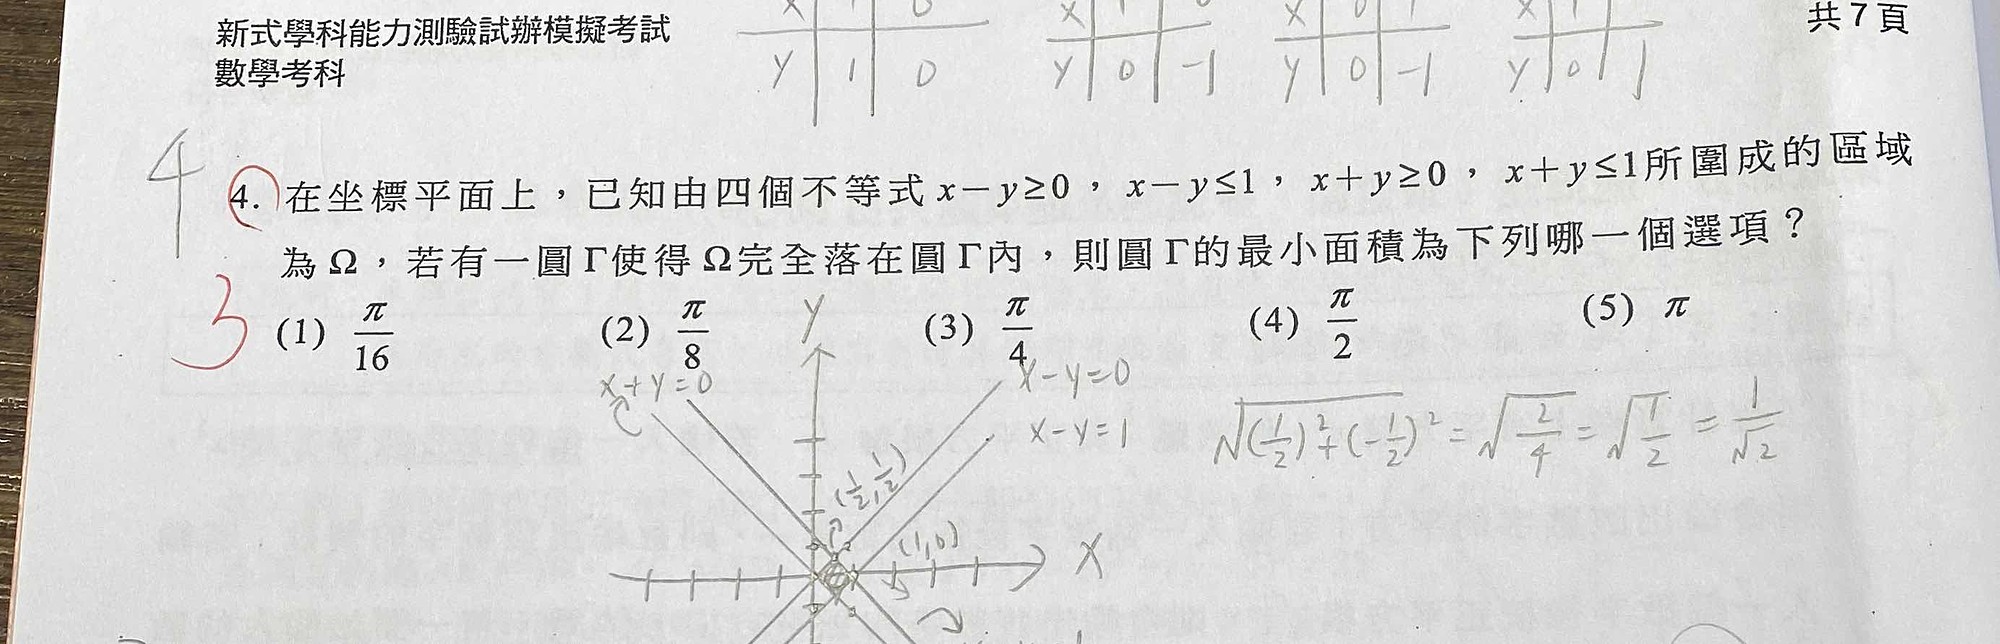 新式學科能力測驗試辦模擬考試
數學考科
共7頁
x 1 0
y 1 0
x 1 0
y 0 -1
x 0 1
y 0 -1
x 1
y 0 1
4
4. 在坐標平面上，已知由四個不等式 x－y≥0，x－y≤1，x＋y≥0，x＋y≤1所圍成的區域
為 Ω，若有一圓 Γ使得 Ω完全落在圓 Γ內，則圓 Γ的最小面積為下列哪一個選項？
3
(1) π/16 (2) π/8 (3) π/4 (4) π/2 (5) π
y
x+y=0
x-y=0
x-y=1
√(1/2)²+(-1/2)² = √2/4 = √1/2 = 1/√2
(1/2, 1/2)
(1,0)
X